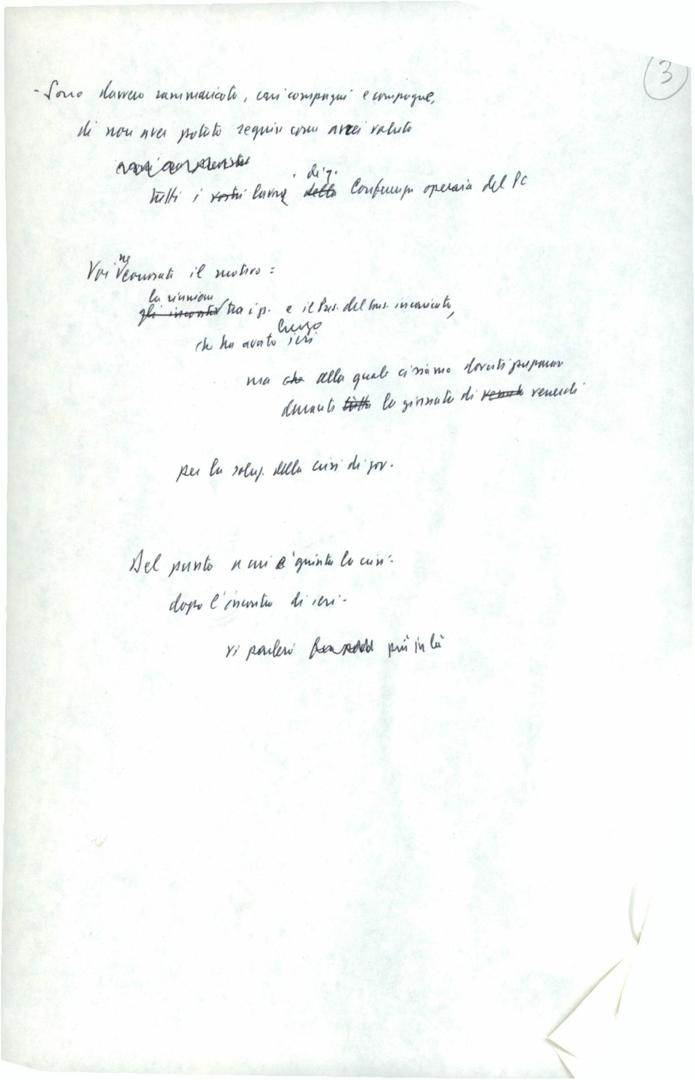 3
- Sono davvero rammaricato, cari compagni e compagne,
di non aver potuto seguire come avrei voluto
tutti i vostri lavori, della Conferenza operaia del PC
di q.
Voi ne conoscete il motivo:
la riunione
gli incontri tra i p. e il Pres. del Cons. incaricato,
che ha avuto luogo ieri
ma che alla quale ci siamo dovuti preparare
durante tutta la giornata di venerdì
per la soluz. della crisi di gov.
Del punto a cui è giunta la crisi
dopo l'incontro di ieri
vi parlerò più in là